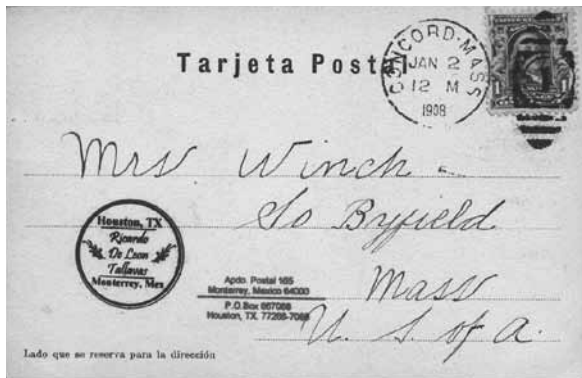 Tarjeta Postal
CONCORD·MASS
JAN 2
12 M
1908
1 1
Mrs Winch
So Byfield
Mass
U. S. of A.
Houston, TX
Ricardo
De Leon
Tallavas
Monterrey, Mex
Apdo. Postal 165
Monterrey, Mexico 64000
P.O.Box 667068
Houston, TX, 77266-7068
Lado que se reserva para la dirección